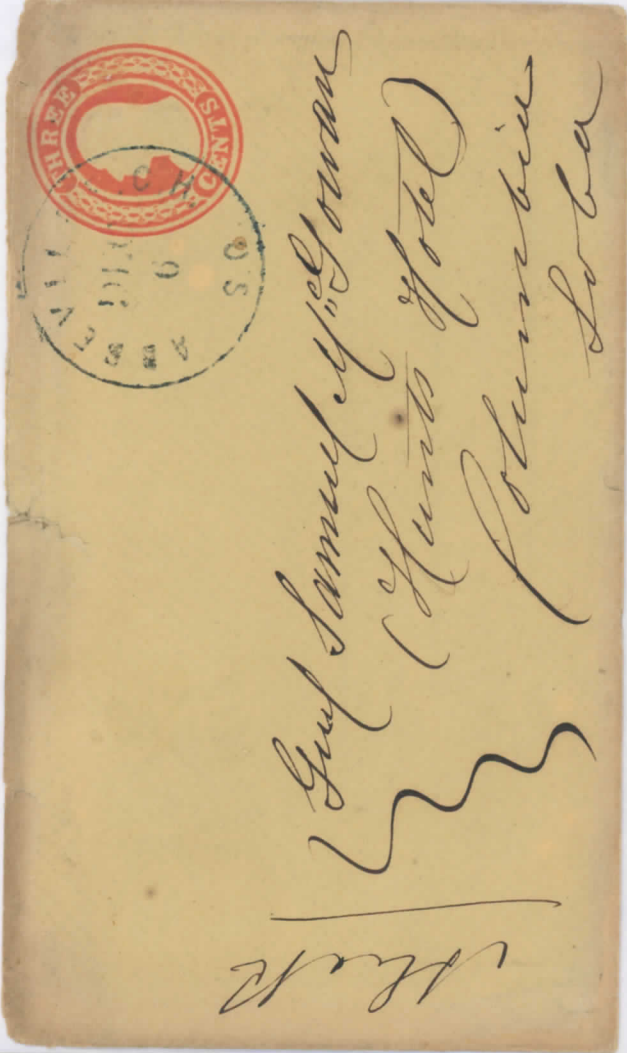 THREE CENTS
ABBEVILLE C.H. S.C.
DEC
6
Genl Samuel McGowan
(Hunts Hotel)
Columbia
So Ca